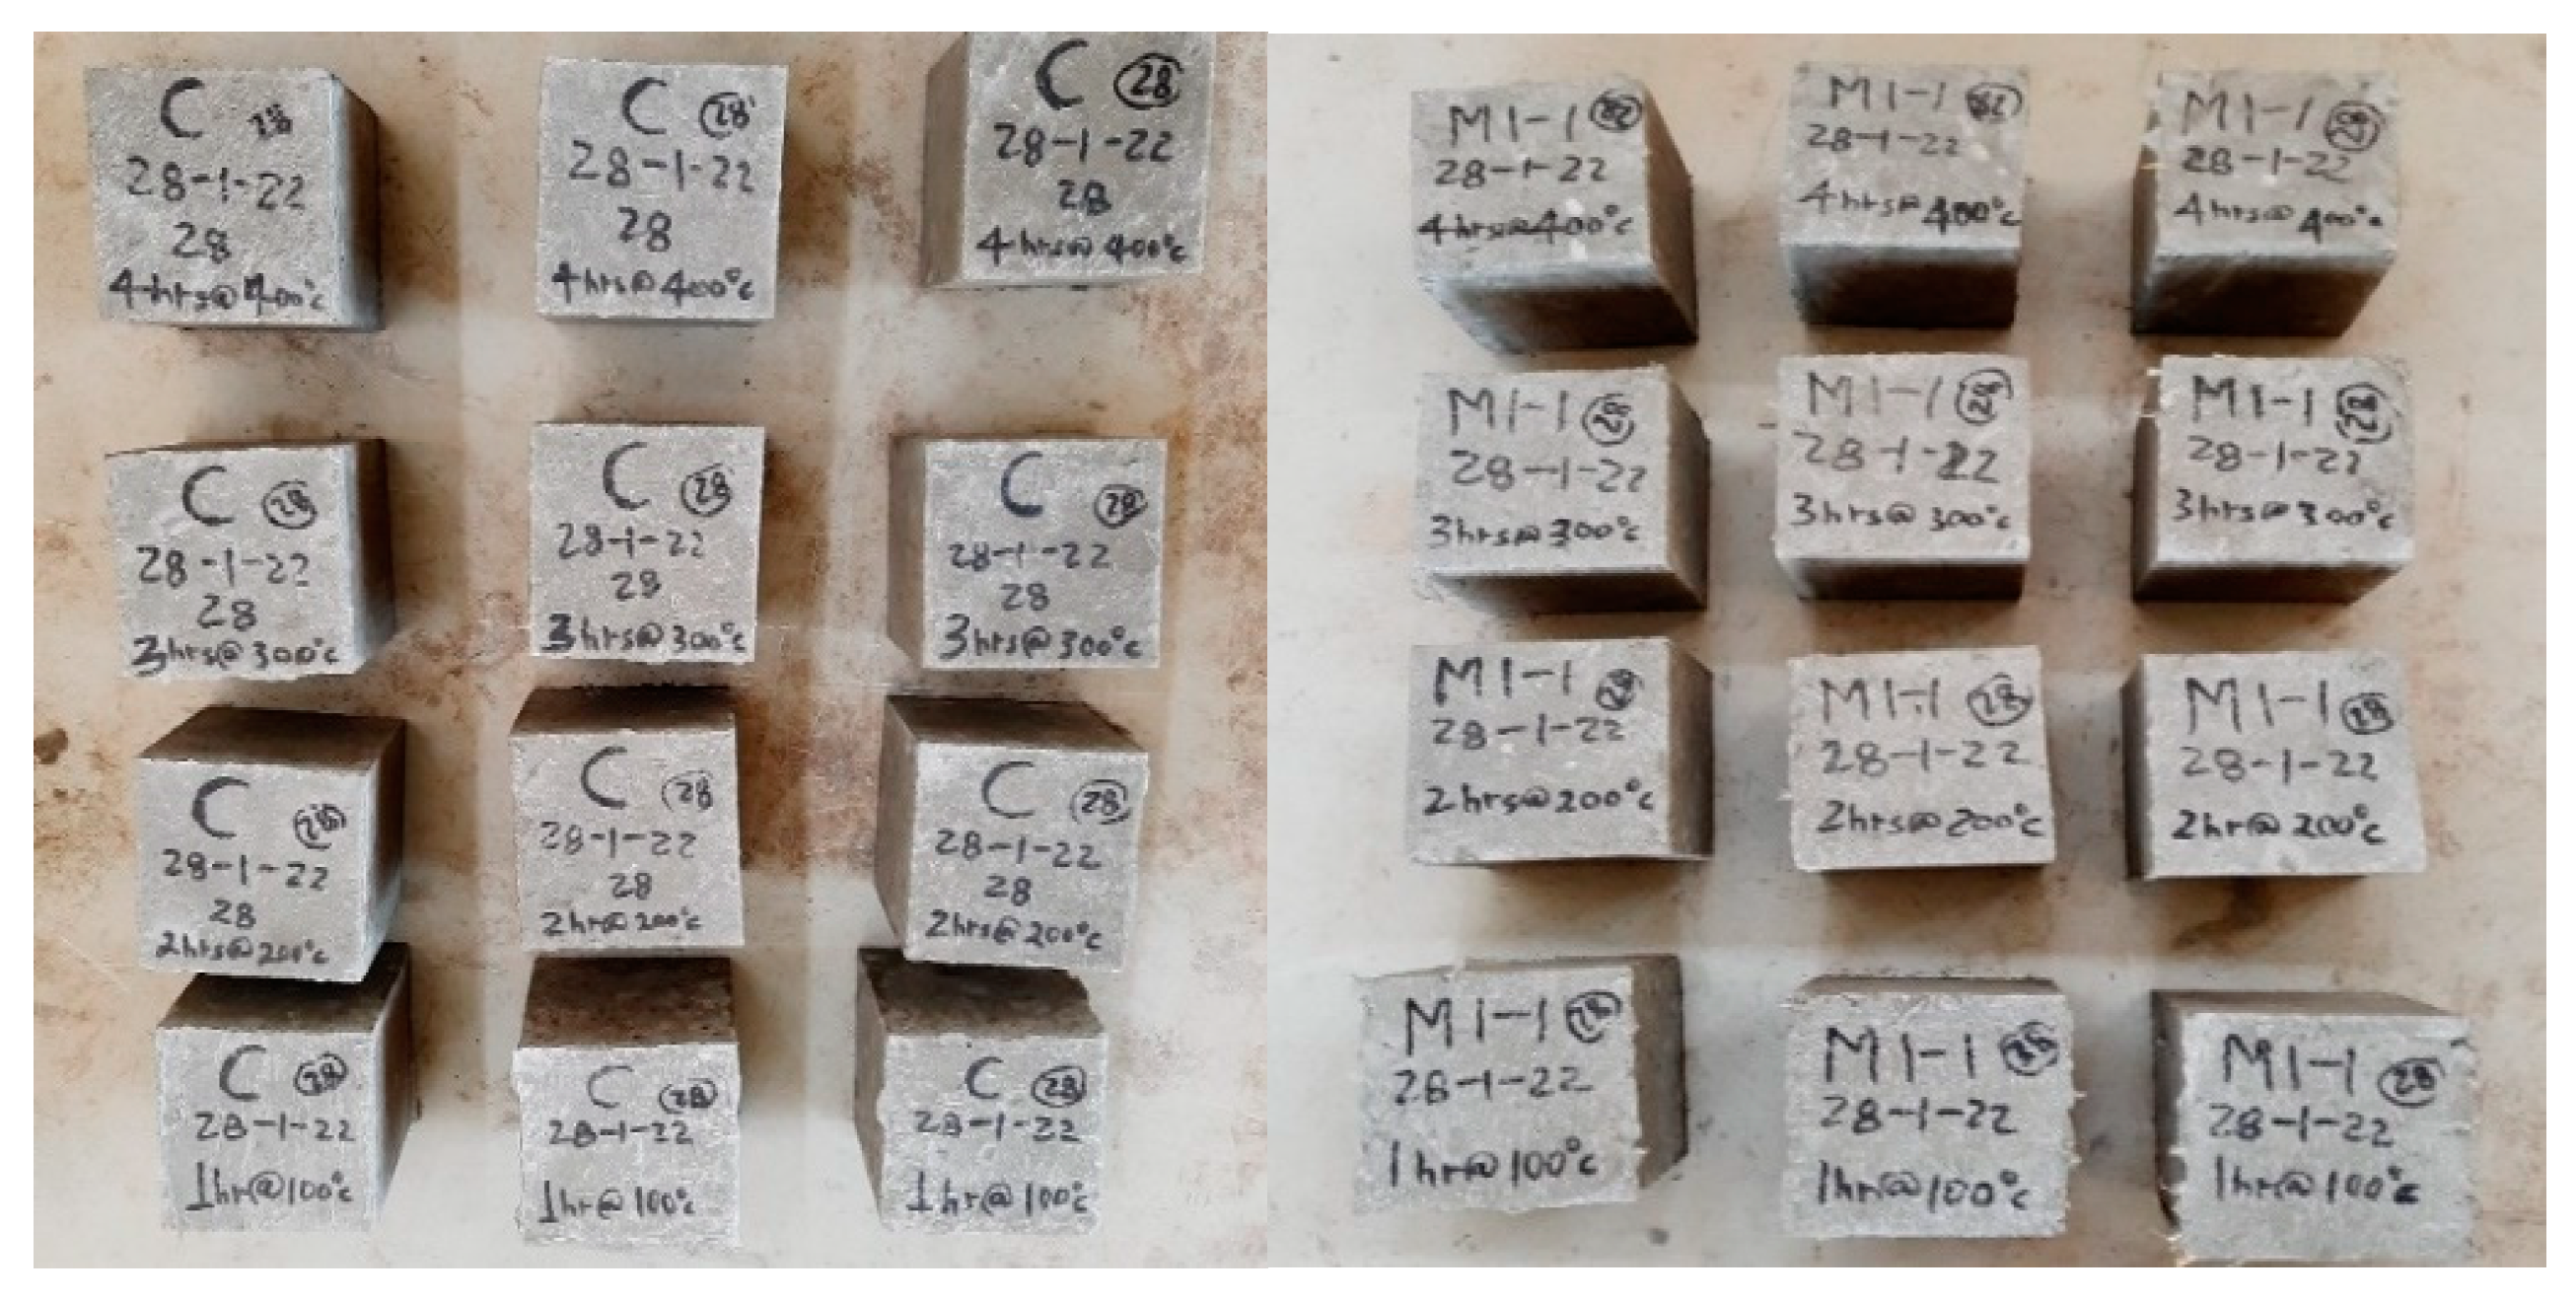 C 28
28-1-22
28
4hrs@400°c
C 28
28-1-22
28
4hrs@400°c
C 28
28-1-22
28
4hrs@400°c
C 28
28-1-22
28
3hrs@300°c
C 28
28-1-22
28
3hrs@300°c
C 28
28-1-22
28
3hrs@300°c
C 28
28-1-22
28
2hrs@200°c
C 28
28-1-22
28
2hr@200°c
C 28
28-1-22
28
2hrs@200°c
C 28
28-1-22
1hr@100°c
C 28
28-1-22
1hr@100°c
C 28
28-1-22
1hr@100°c
M1-1
28-1-22
4hrs@400°c
M1-1
28-1-22
4hrs@400°c
M1-1
28-1-22
4hrs@400°c
M1-1 28
28-1-22
3hrs@300°c
M1-1 28
28-1-22
3hrs@300°c
M1-1 28
28-1-22
3hrs@300°c
M1-1 28
28-1-22
2hrs@200°c
M1-1 28
28-1-22
2hrs@200°c
M1-1 28
28-1-22
2hr@200°c
M1-1 28
28-1-22
1hr@100°c
M1-1 28
28-1-22
1hr@100°c
M1-1 28
28-1-22
1hr@100°c